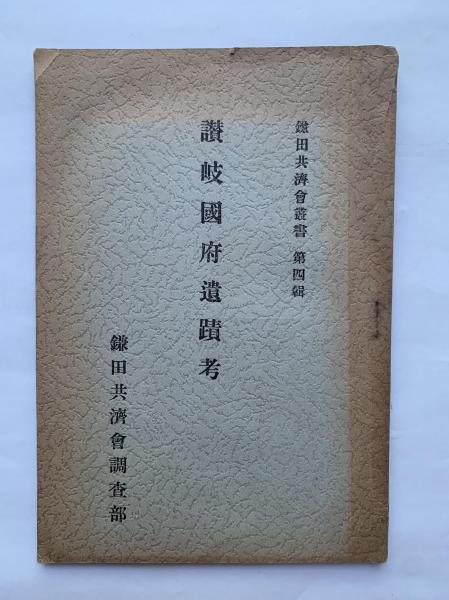 鎌田共濟會叢書 第四輯
讃岐國府遺蹟考
鎌田共濟會調査部